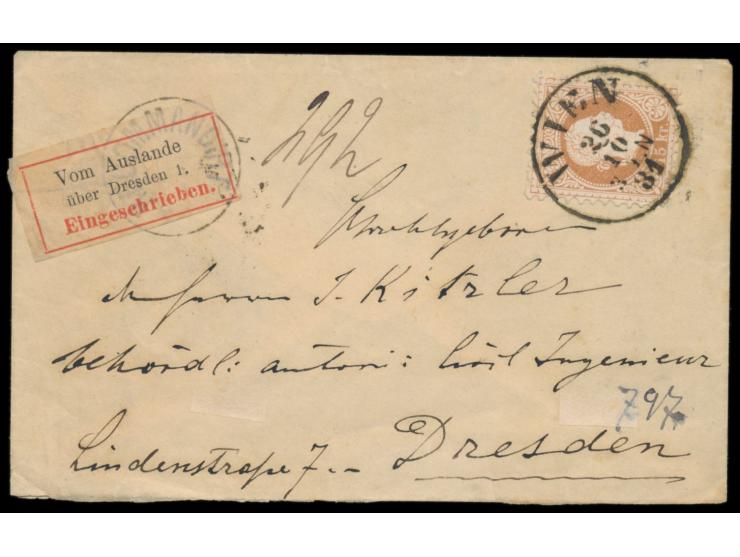 Vom Auslande
über Dresden 1.
Eingeschrieben.
RECOMMANDIRT
292
WIEN
26
10
81
15 kr.
Wohlgeboren
Herrn J. Kitzler
behördl: autori: Civil Ingenieur
797
Lindenstraße 7.-- Dresden